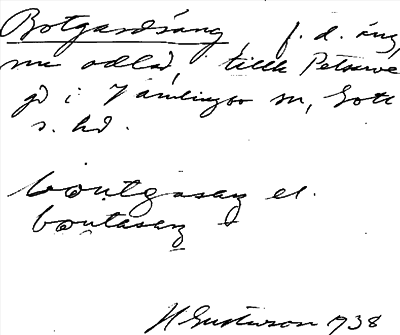 Botgardsäng, f. d. äng,
nu odlad, tillh Petsarve
gd i Vamlingbo sn, Gotl
s. hd.
bo̤u̶tgasaŋ el.
bo̤u̶tasaŋ
H Gustavson 1938